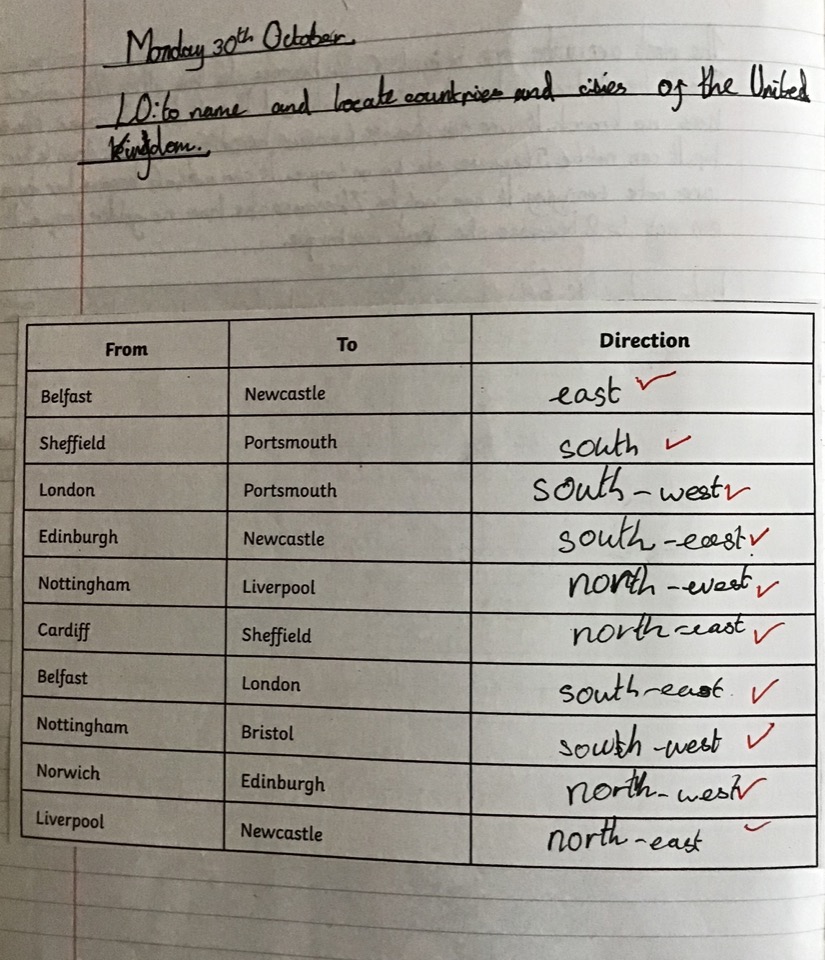 Monday 30th October.
LO: to name and locate countries and cities of the United
Kingdom.
From To Direction
Belfast Newcastle east
Sheffield Portsmouth south
London Portsmouth south-west
Edinburgh Newcastle south-east
Nottingham Liverpool north-west
Cardiff Sheffield north-east
Belfast London south-east
Nottingham Bristol south-west
Norwich Edinburgh north-west
Liverpool Newcastle north-east